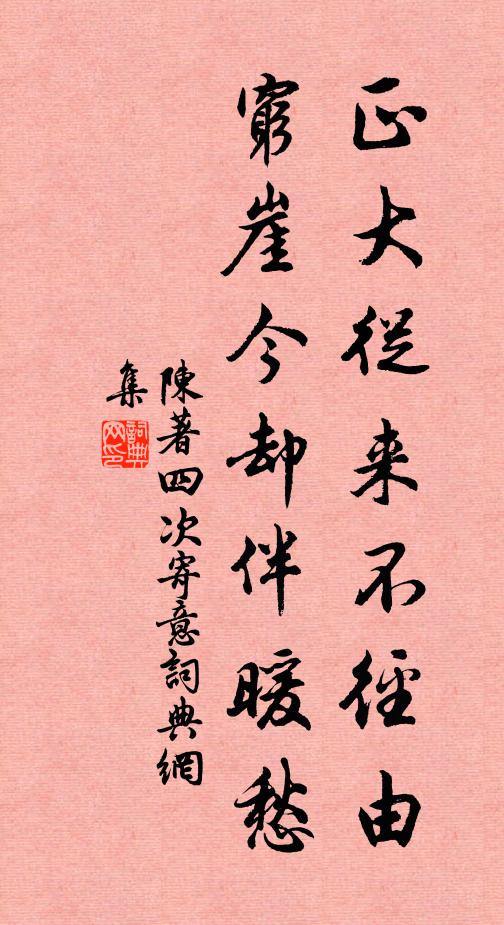 正大從来不徑由
窮崖今却伴暖愁
陳著四次寄意詞典網
集
詞典
网印